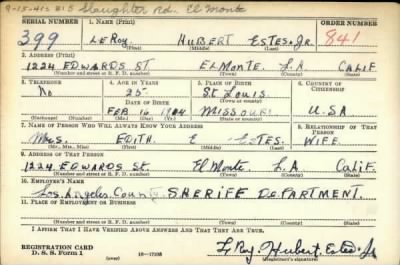 9-15-41 815 Slaughter Rd. El Monte
SERIAL NUMBER 1. NAME (Print) ORDER NUMBER
399 LeRoy HUBERT ESTES Jr. 841
(First) (Middle) (Last)
2. ADDRESS (Print)
1224 EDWARDS ST ELMONTE L.A CALIF.
(Number and street or R. F. D. number) (Town) (County) (State)
3. TELEPHONE 4. AGE IN YEARS 5. PLACE OF BIRTH 6. COUNTRY OF CITIZENSHIP
No 25 St Louis
DATE OF BIRTH (Town or county)
FEB 16 MISSOURI U.S.A
(Exchange) (Number) (Mo.) (Day) (Yr.) (State or country)
7. NAME OF PERSON WHO WILL ALWAYS KNOW YOUR ADDRESS 8. RELATIONSHIP OF THAT PERSON
Mrs. EDITH E ESTES WIFE
(Mr., Mrs., Miss) (First) (Middle) (Last)
9. ADDRESS OF THAT PERSON
1224 EDWARDS St. El Monte. L.A Calif.
(Number and street or R. F. D. number) (Town) (County) (State)
10. EMPLOYER'S NAME
Los Angeles County SHERIFF DEPARTMENT.
11. PLACE OF EMPLOYMENT OR BUSINESS
(Number and street or R. F. D. number) (Town) (County) (State)
I AFFIRM THAT I HAVE VERIFIED ABOVE ANSWERS AND THAT THEY ARE TRUE.
REGISTRATION CARD
D. S. S. Form 1 (over) 16-17105 Le Roy Hubert Estes Jr
(Registrant's signature)